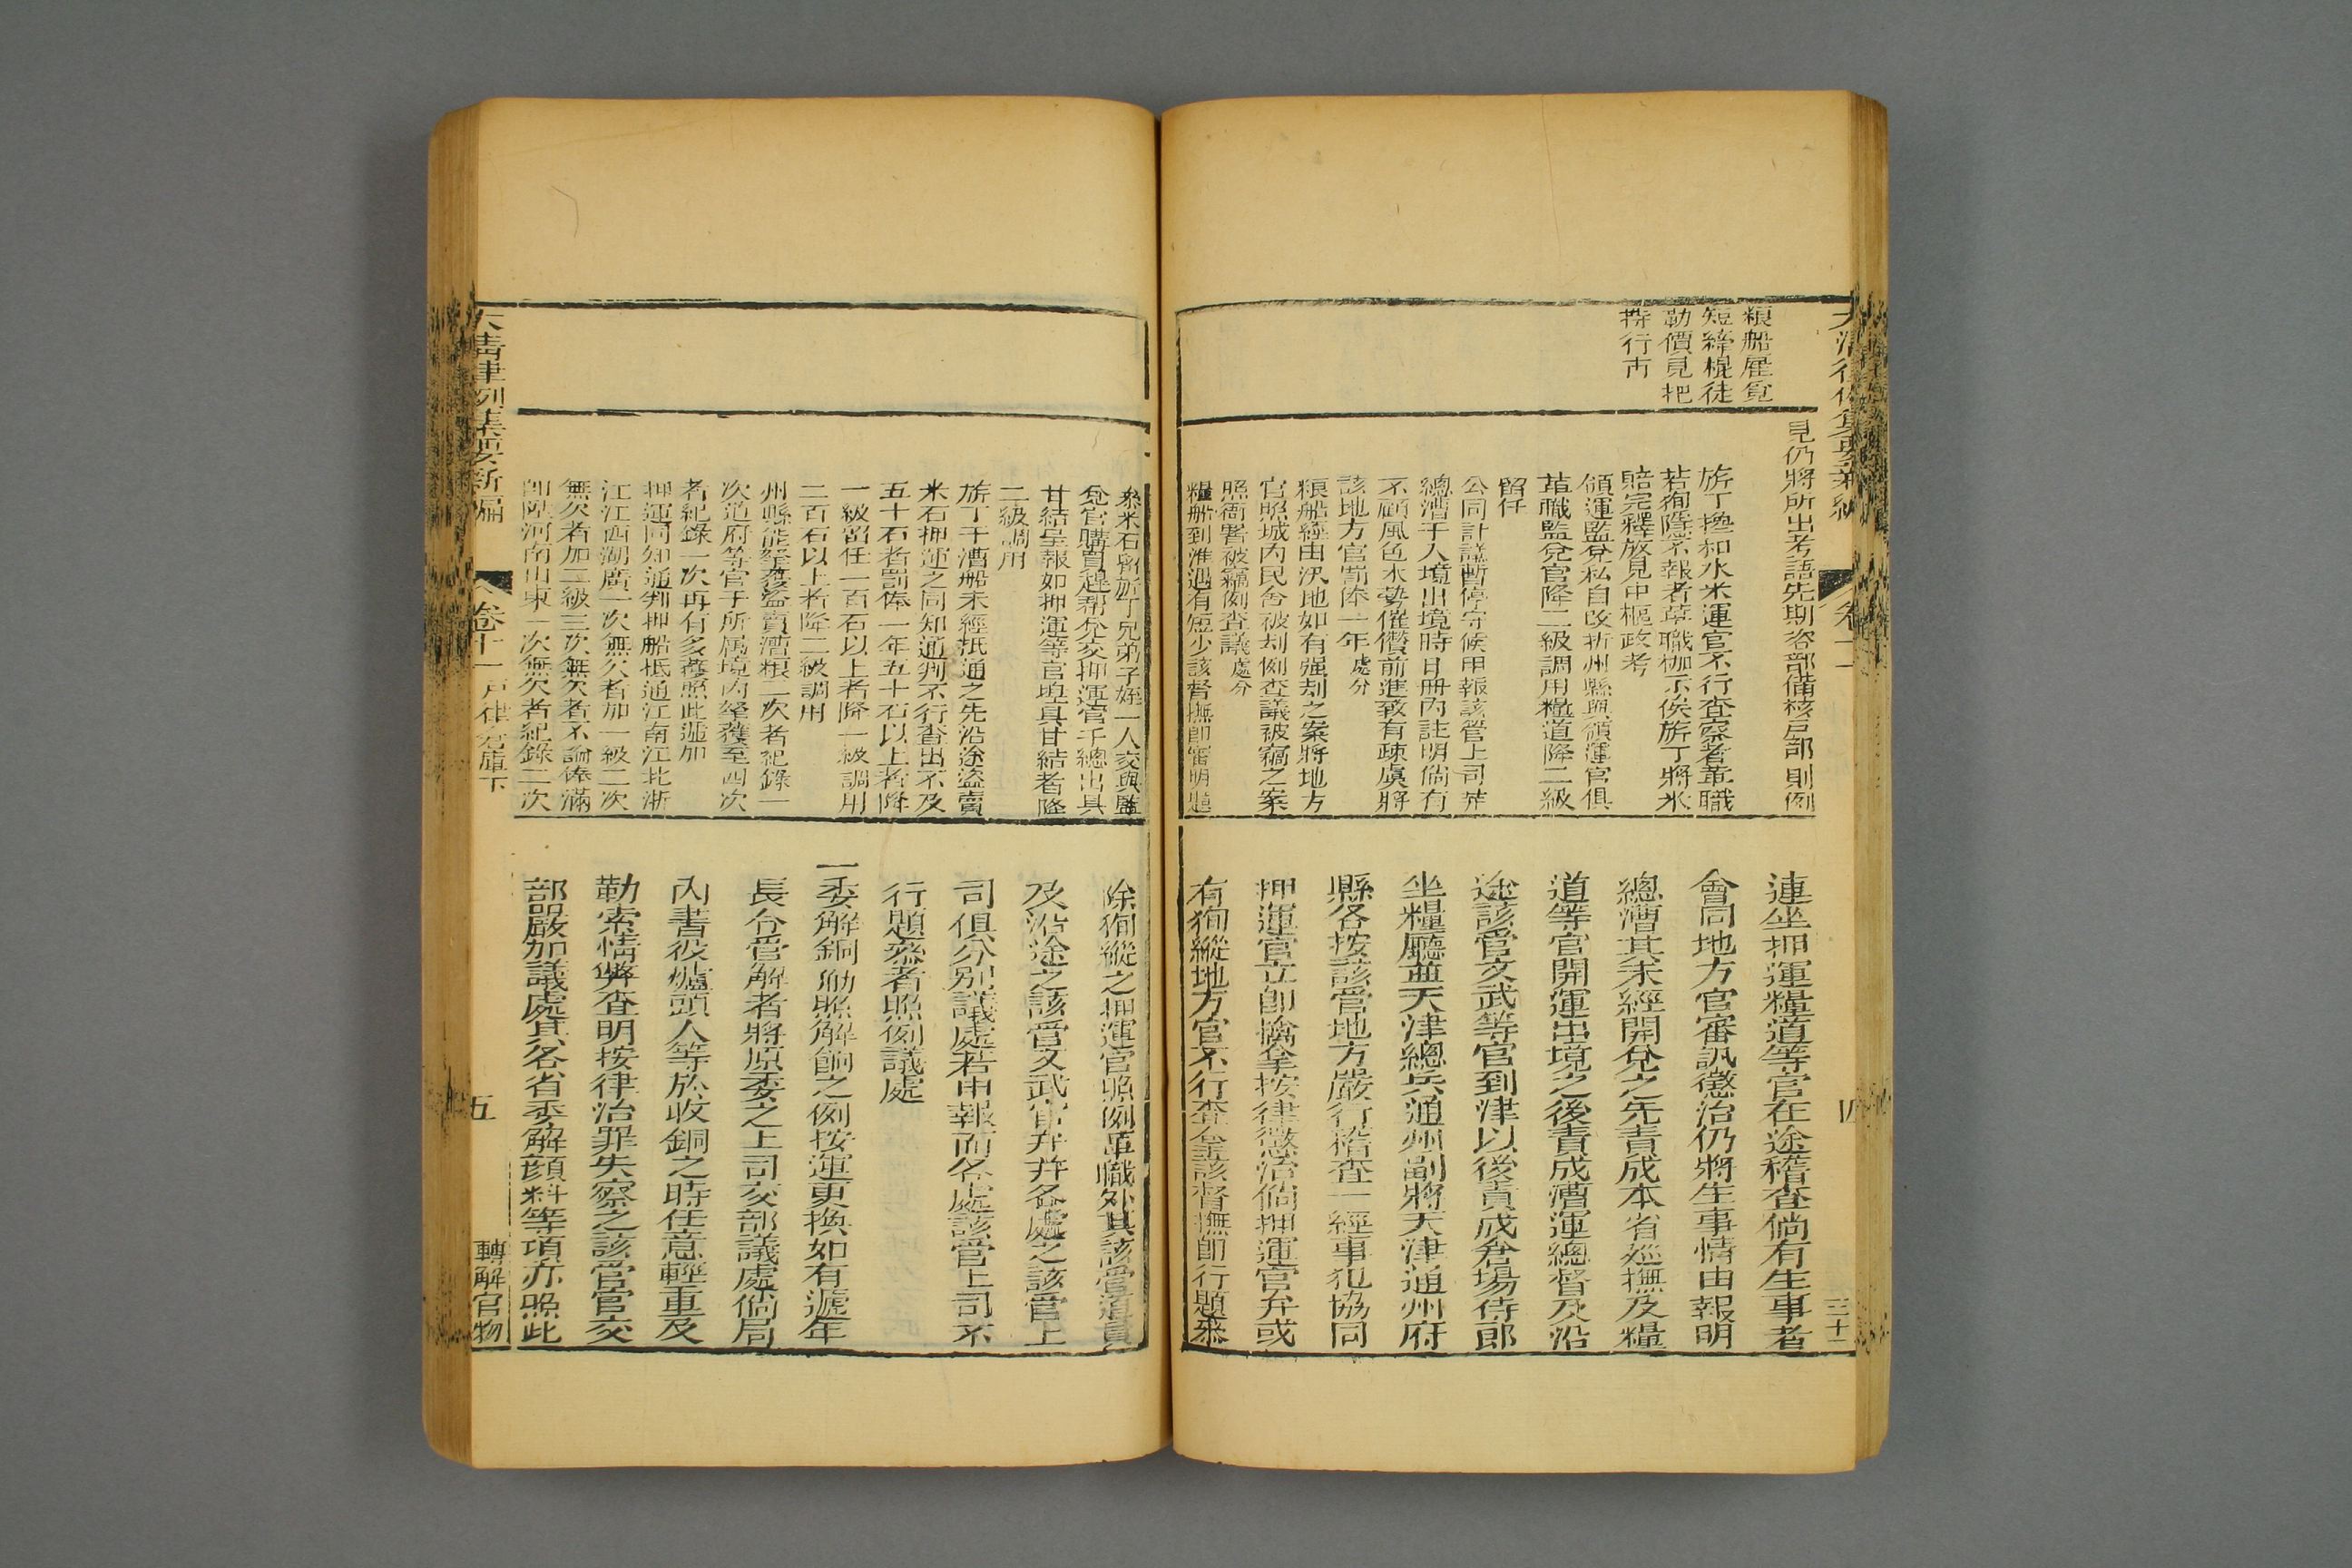 糧船雇覓
短縴棍徒
勒價見把
持行市
見仍將所出考語先期咨部備核戶部則例
旂丁攙和水米運官不行查察者革職
若徇隱不報者革職枷示俟旂丁將米
賠完釋放見中樞政考
領運監兌私自改折州縣與領運官俱
革職監兌官降二級調用糧道降二級
留任
公同計議暫停守候申報該管上司并
總漕于入境出境時日冊內註明倘有
不顧風色水勢催儹前進致有疎虞將
該地方官罰俸一年處分
糧船經由汛地如有强刦之案將地方
官照城內民舍被刦例查議被竊之案
照衙署被竊例查議處分
糧船到淮遇有短少該督撫卽審明題
連坐押運糧道等官在途稽查倘有生事者
會同地方官審訊懲治仍將生事情由報明
總漕其未經開兌之先責成本省巡撫及糧
道等官開運出境之後責成漕運總督及沿
途該管文武等官到津以後責成倉場侍郎
坐糧廳並天津總兵通州副將天津通州府
縣各按該管地方嚴行稽查一經事犯協同
押運官立卽擒拿按律懲治倘押運官弁或
有徇縱地方官不行查拿該督撫卽行題叅
叅米石留旂丁兄弟子姪一人交與監
兌官購買趕幫兌交押運官千總出具
甘結呈報如押運等官揑具甘結者降
二級調用
旂丁于漕船未經抵通之先沿途盜賣
米石押運之同知通判不行查出不及
五十石者罰俸一年五十石以上者降
一級留任一百石以上者降一級調用
二百石以上者降二級調用
州縣能拏獲盜賣漕糧二次者紀錄一
次道府等官于所屬境內拏獲至四次
者紀錄一次再有多獲照此遞加
押運同知通判押船抵通江南江北浙
江江西湖廣一次無欠者加一級二次
無欠者加二級三次無欠者不論俸滿
卽陞河南山東一次無欠者紀錄二次
除徇縱之押運官照例革職外其該管道員
及沿途之該管文武官弁并各處之該管上
司俱分別議處若申報而各處該管上司不
行題叅者照例議處
一委解銅觔照解餉之例按運更換如有遞年
長令管解者將原委之上司交部議處倘局
內書役爐頭人等於收銅之時任意輕重及
勒索情弊查明按律治罪失察之該管官交
部嚴加議處其各省委解顔料等項亦照此
大淸律例集要新編
卷十一戶律倉庫下
五
轉解官物